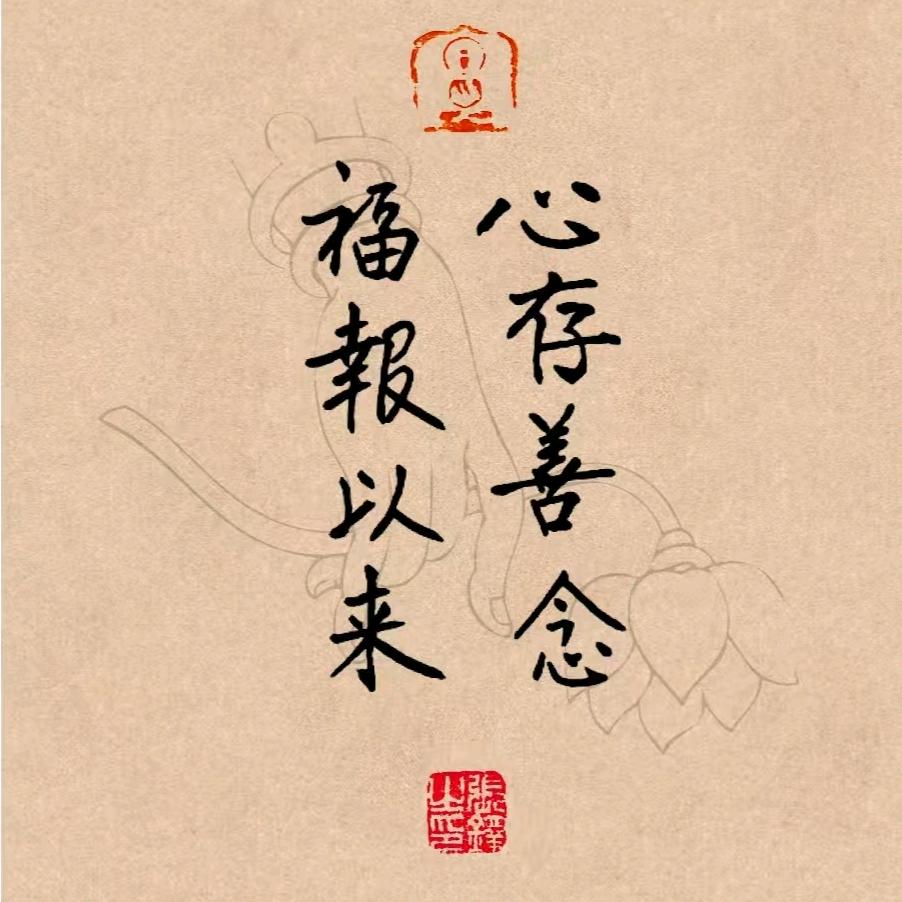 心存善念
福報以来